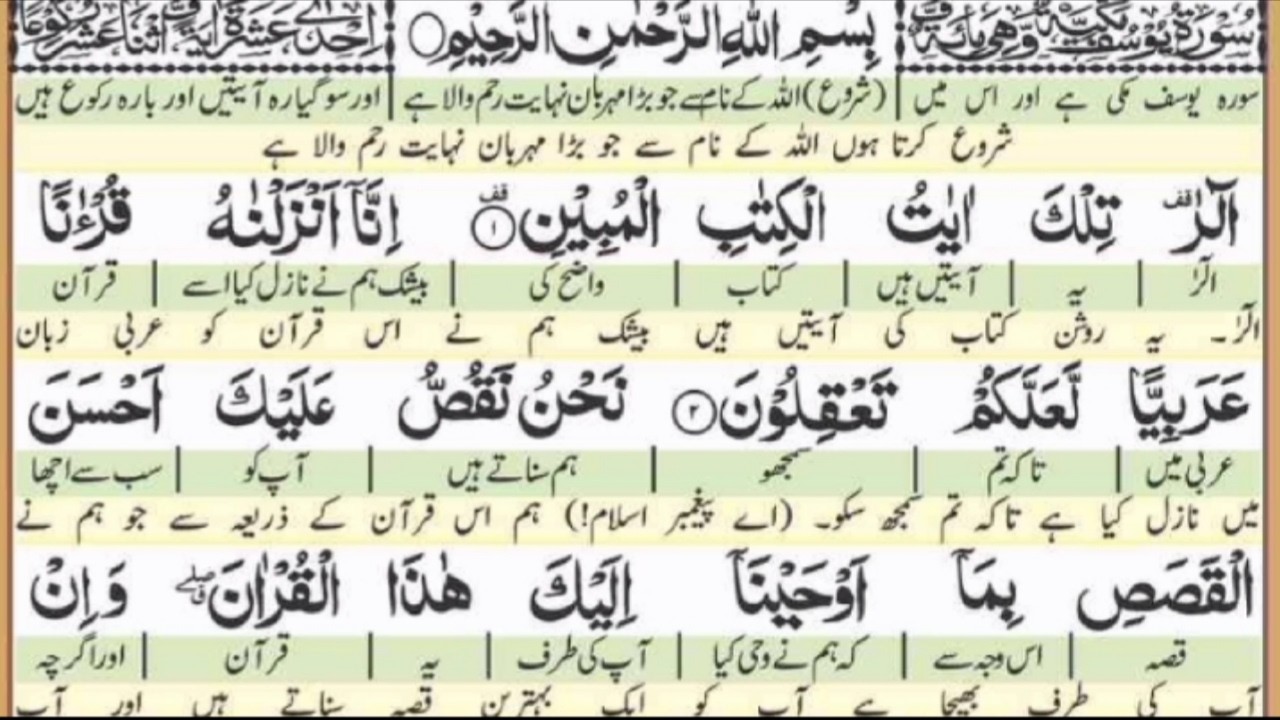 سُوْرَةُ يُوْسُفَ مَكِّيَّةٌ وَّهِيَ مِائَةٌ وَّ بِسْمِ اللهِ الرَّحْمٰنِ الرَّحِيْمِ اِحْدٰى عَشَرَةَ اٰيَةً وَّاثْنَا عَشَرَ رُكُوْعًا
سورہ یوسف مکی ہے اور اس میں | (شروع) اللہ کے نام سے جو بڑا مہربان نہایت رحم والا ہے | اور سو گیارہ آیتیں اور بارہ رکوع ہیں
شروع کرتا ہوں اللہ کے نام سے جو بڑا مہربان نہایت رحم والا ہے
الٓرٰ قف تِلْكَ اٰيٰتُ الْكِتٰبِ الْمُبِيْنِ ۱ قف اِنَّاۤ اَنْزَلْنٰهُ قُرْءٰنًا
الٓرٰ | یہ | آیتیں ہیں | کتاب | واضح کی | بیشک ہم نے نازل کیا اسے | قرآن
الٓرٰ۔ یہ روشن کتاب کی آیتیں ہیں بیشک ہم نے اس قرآن کو عربی زبان
عَرَبِيًّا لَّعَلَّكُمْ تَعْقِلُوْنَ ۲ نَحْنُ نَقُصُّ عَلَيْكَ اَحْسَنَ
عربی میں | تاکہ تم | سمجھو | ہم سناتے ہیں | آپ کو | سب سے اچھا
میں نازل کیا ہے تاکہ تم سمجھ سکو۔ (اے پیغمبر اسلام!) ہم اس قرآن کے ذریعہ سے جو ہم نے
الْقَصَصِ بِمَاۤ اَوْحَيْنَاۤ اِلَيْكَ هٰذَا الْقُرْاٰنَ صلے ق وَاِنْ
قصہ | اس وجہ سے | کہ ہم نے وحی کیا | آپ کی طرف | یہ | قرآن | اور اگرچہ
آپ کی طرف بھیجا ہے آپ کو ایک بہترین قصہ سناتے ہیں اور آپ